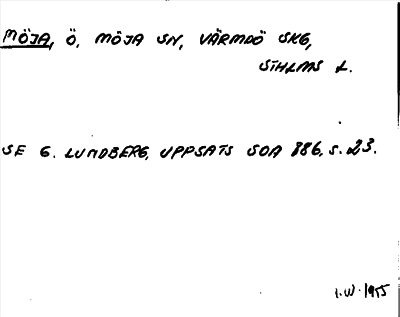 MÖJA, Ö, MÖJA SN, VÄRMDÖ SKG,
STHLMS L.
SE G. LUNDBERG, UPPSATS SOA 886, S. 23.
I.W. 1955